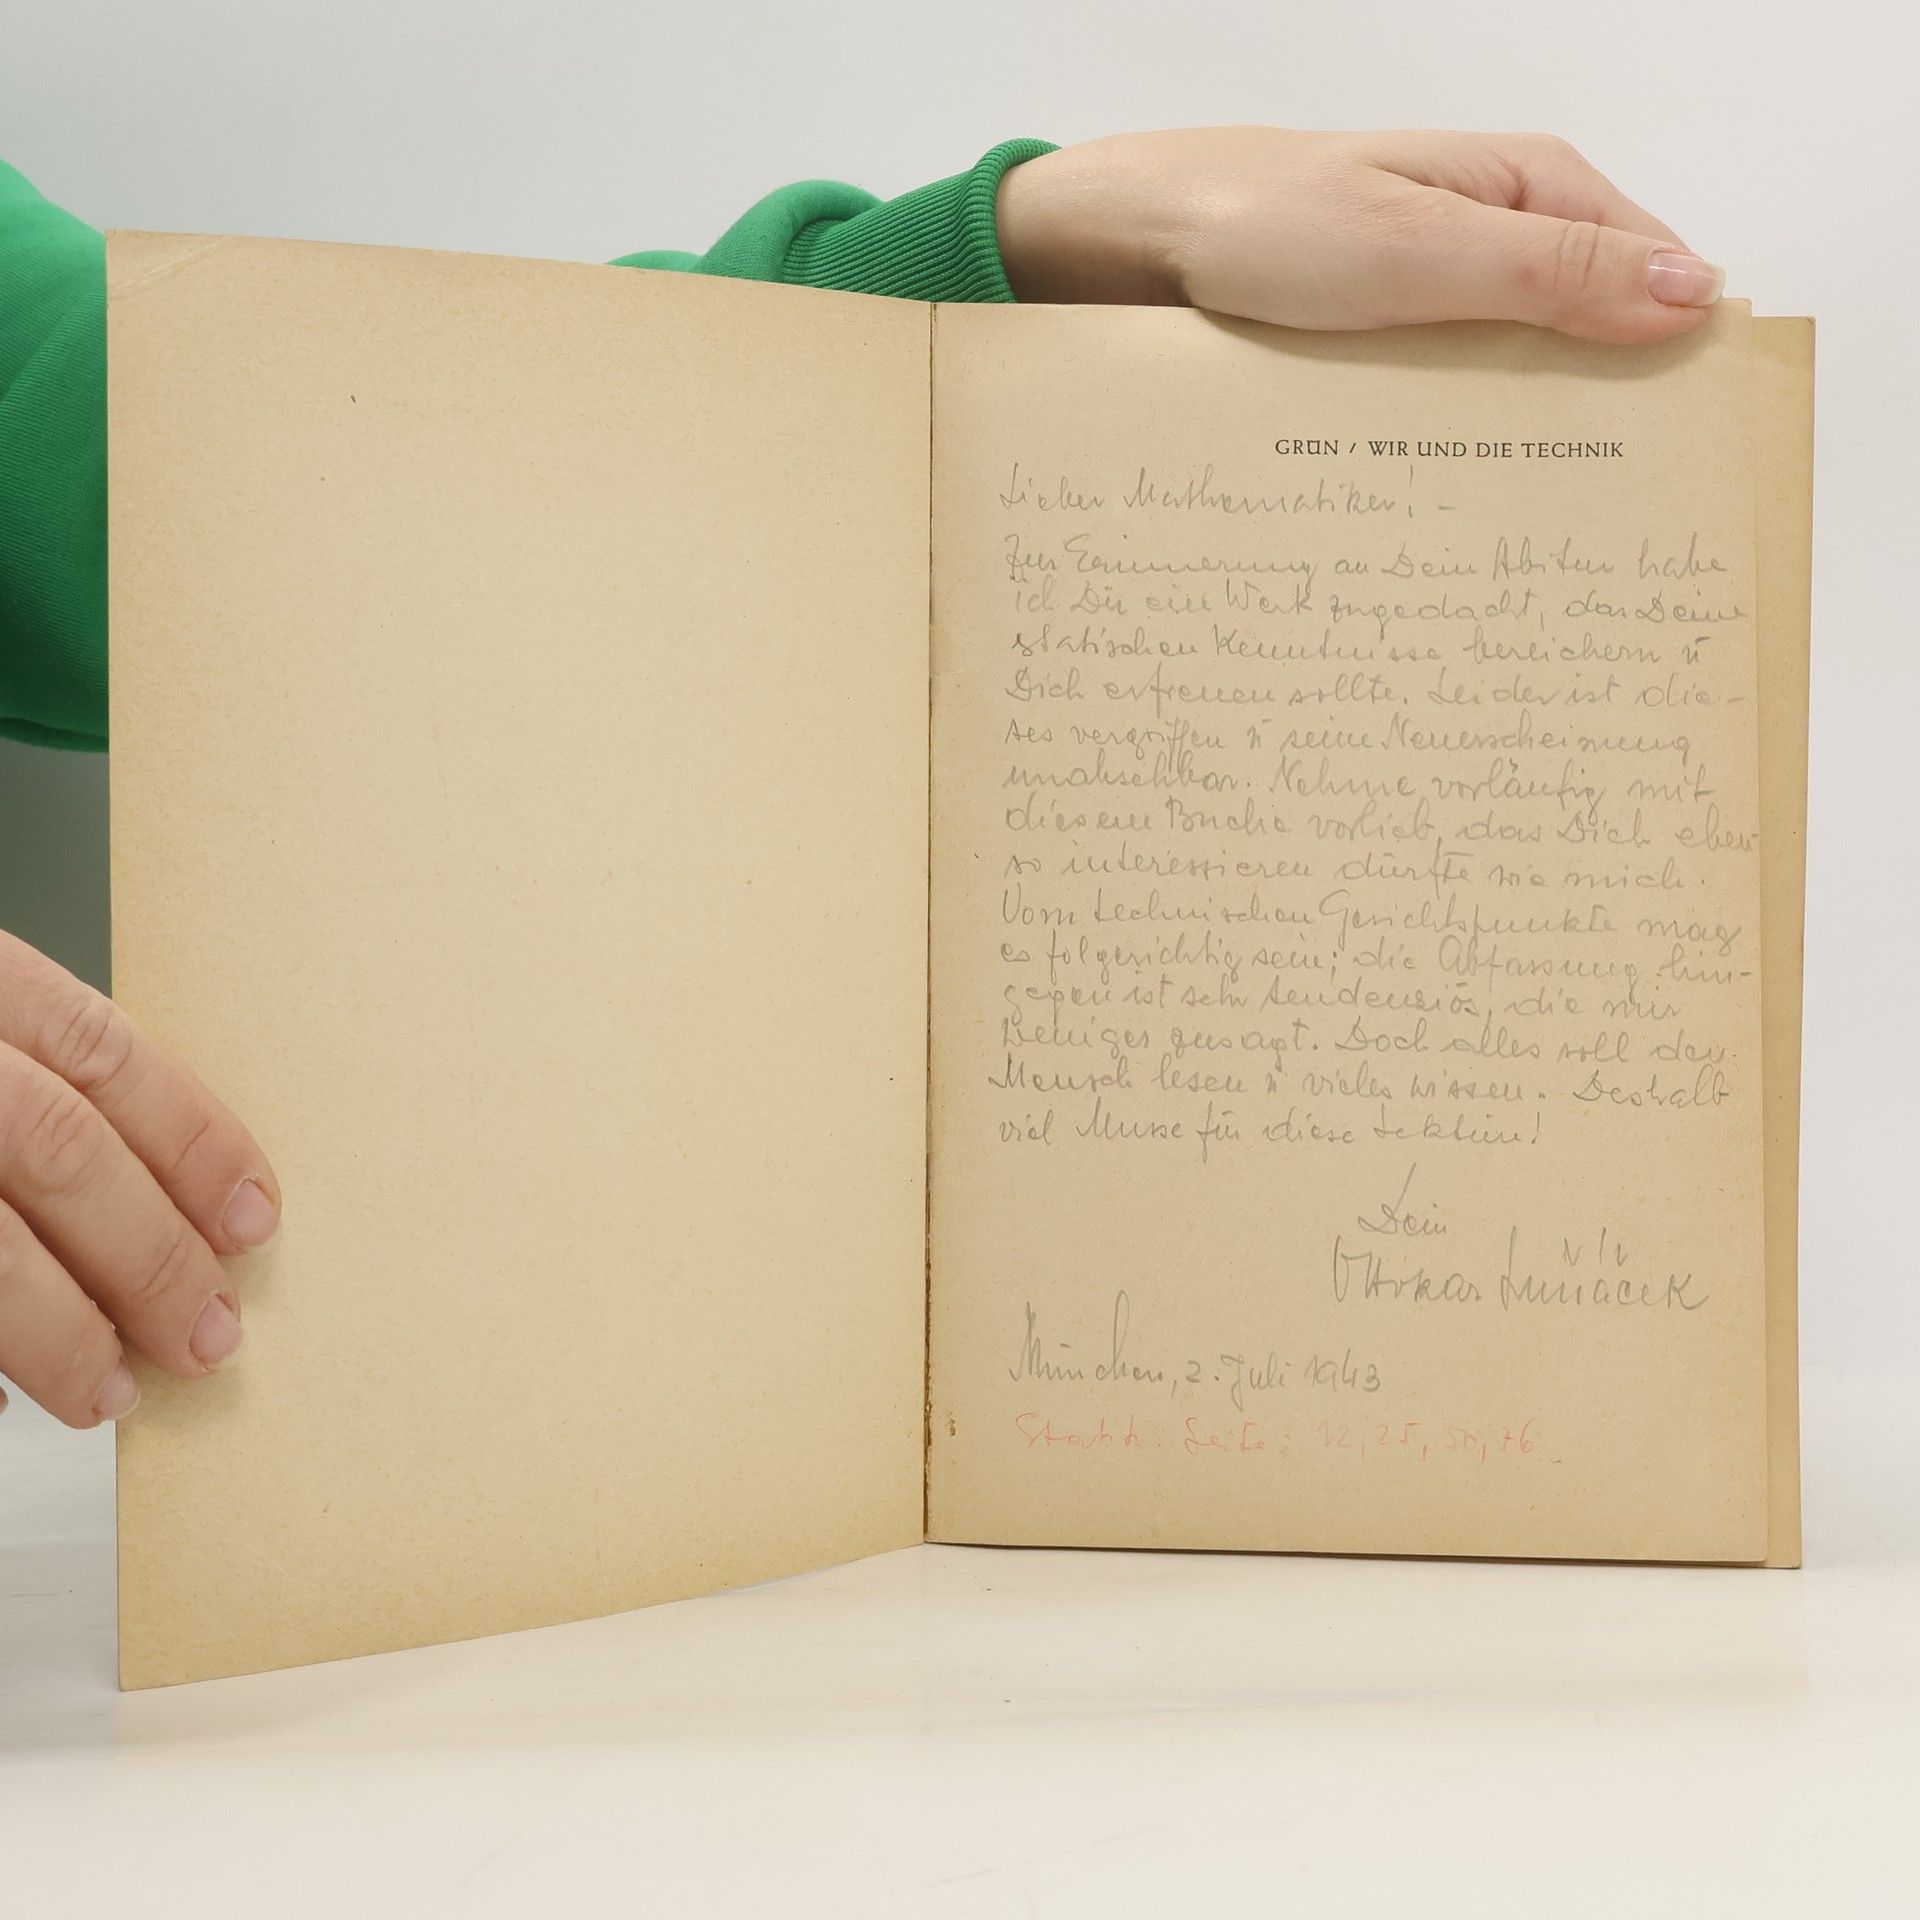 GRÜN / WIR UND DIE TECHNIK
Lieber Mathematiker! –
Zur Erinnerung an Dein Abitur habe
ich Dir ein Werk zugedacht, das Deine
statischen Kenntnisse bereichern ū
Dich erfreuen sollte. Leider ist die-
ses vergriffen ū seine Neuerscheinung
unabsehbar. Nehme vorläufig mit
diesem Buche vorlieb, das Dich eben-
so interessieren dürfte wie mich.
Vom technischen Gesichtspunkte mag
es folgerichtig sein; die Abfassung hin-
gegen ist sehr tendenziös, die mir
weniger zusagt. Doch alles soll der
Mensch lesen ū vieles wissen. Deshalb
viel Musse für diese Lektüre!
Dein
Ottokar Luňáček
München, 2. Juli 1943
Seite: 12, 25, 50, 76